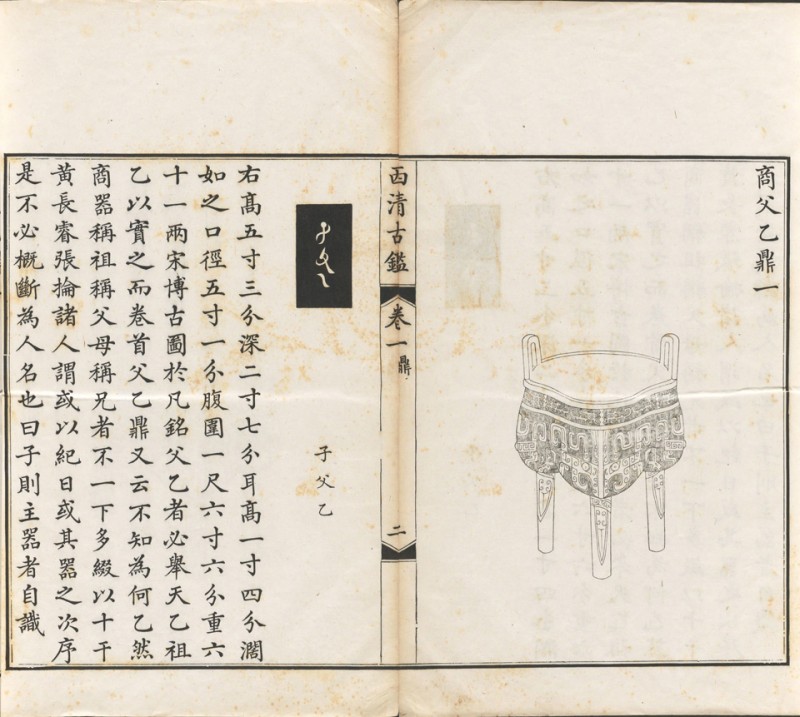 商父乙鼎一
西清古鑑 卷一 鼎 二
子父乙
子父乙
右高五寸三分深二寸七分耳高一寸四分濶
如之口徑五寸一分腹圍一尺六寸六分重六
十一兩宋博古圖於凡銘父乙者必舉天乙祖
乙以實之而卷首父乙鼎又云不知為何乙然
商器稱祖稱父母稱兄者不一下多綴以十干
黃長睿張掄諸人謂或以紀日或其器之次序
是不必概斷為人名也曰子則主器者自識